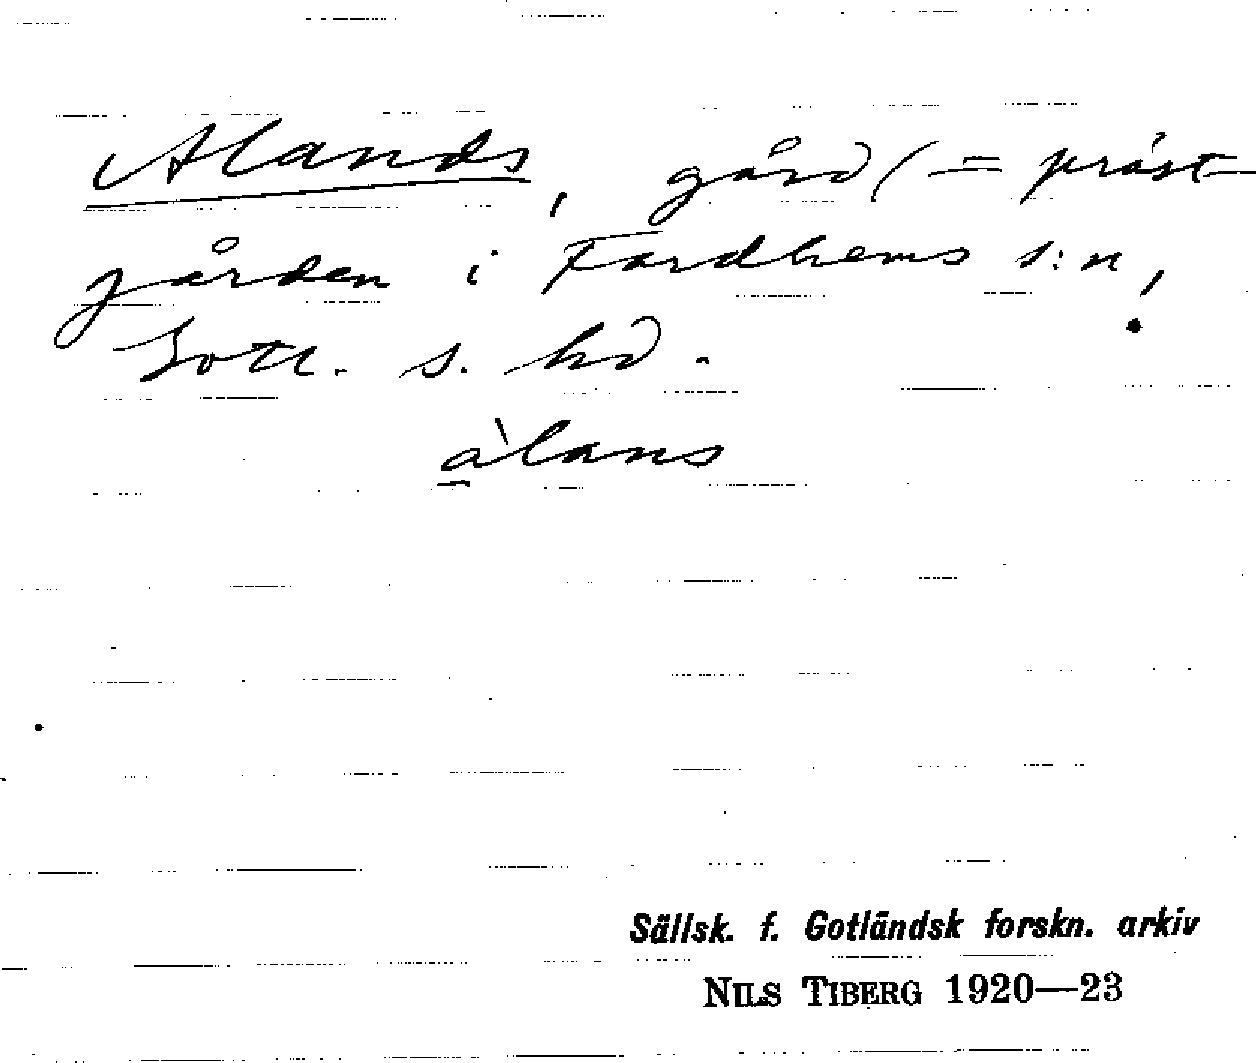 Alands, gård (= präst-
gården i Fardhems s:n,
Gotl. s. hd.
a̠̍lans
Sällsk. f. Gotländsk forskn. arkiv
NILS TIBERG 1920—23